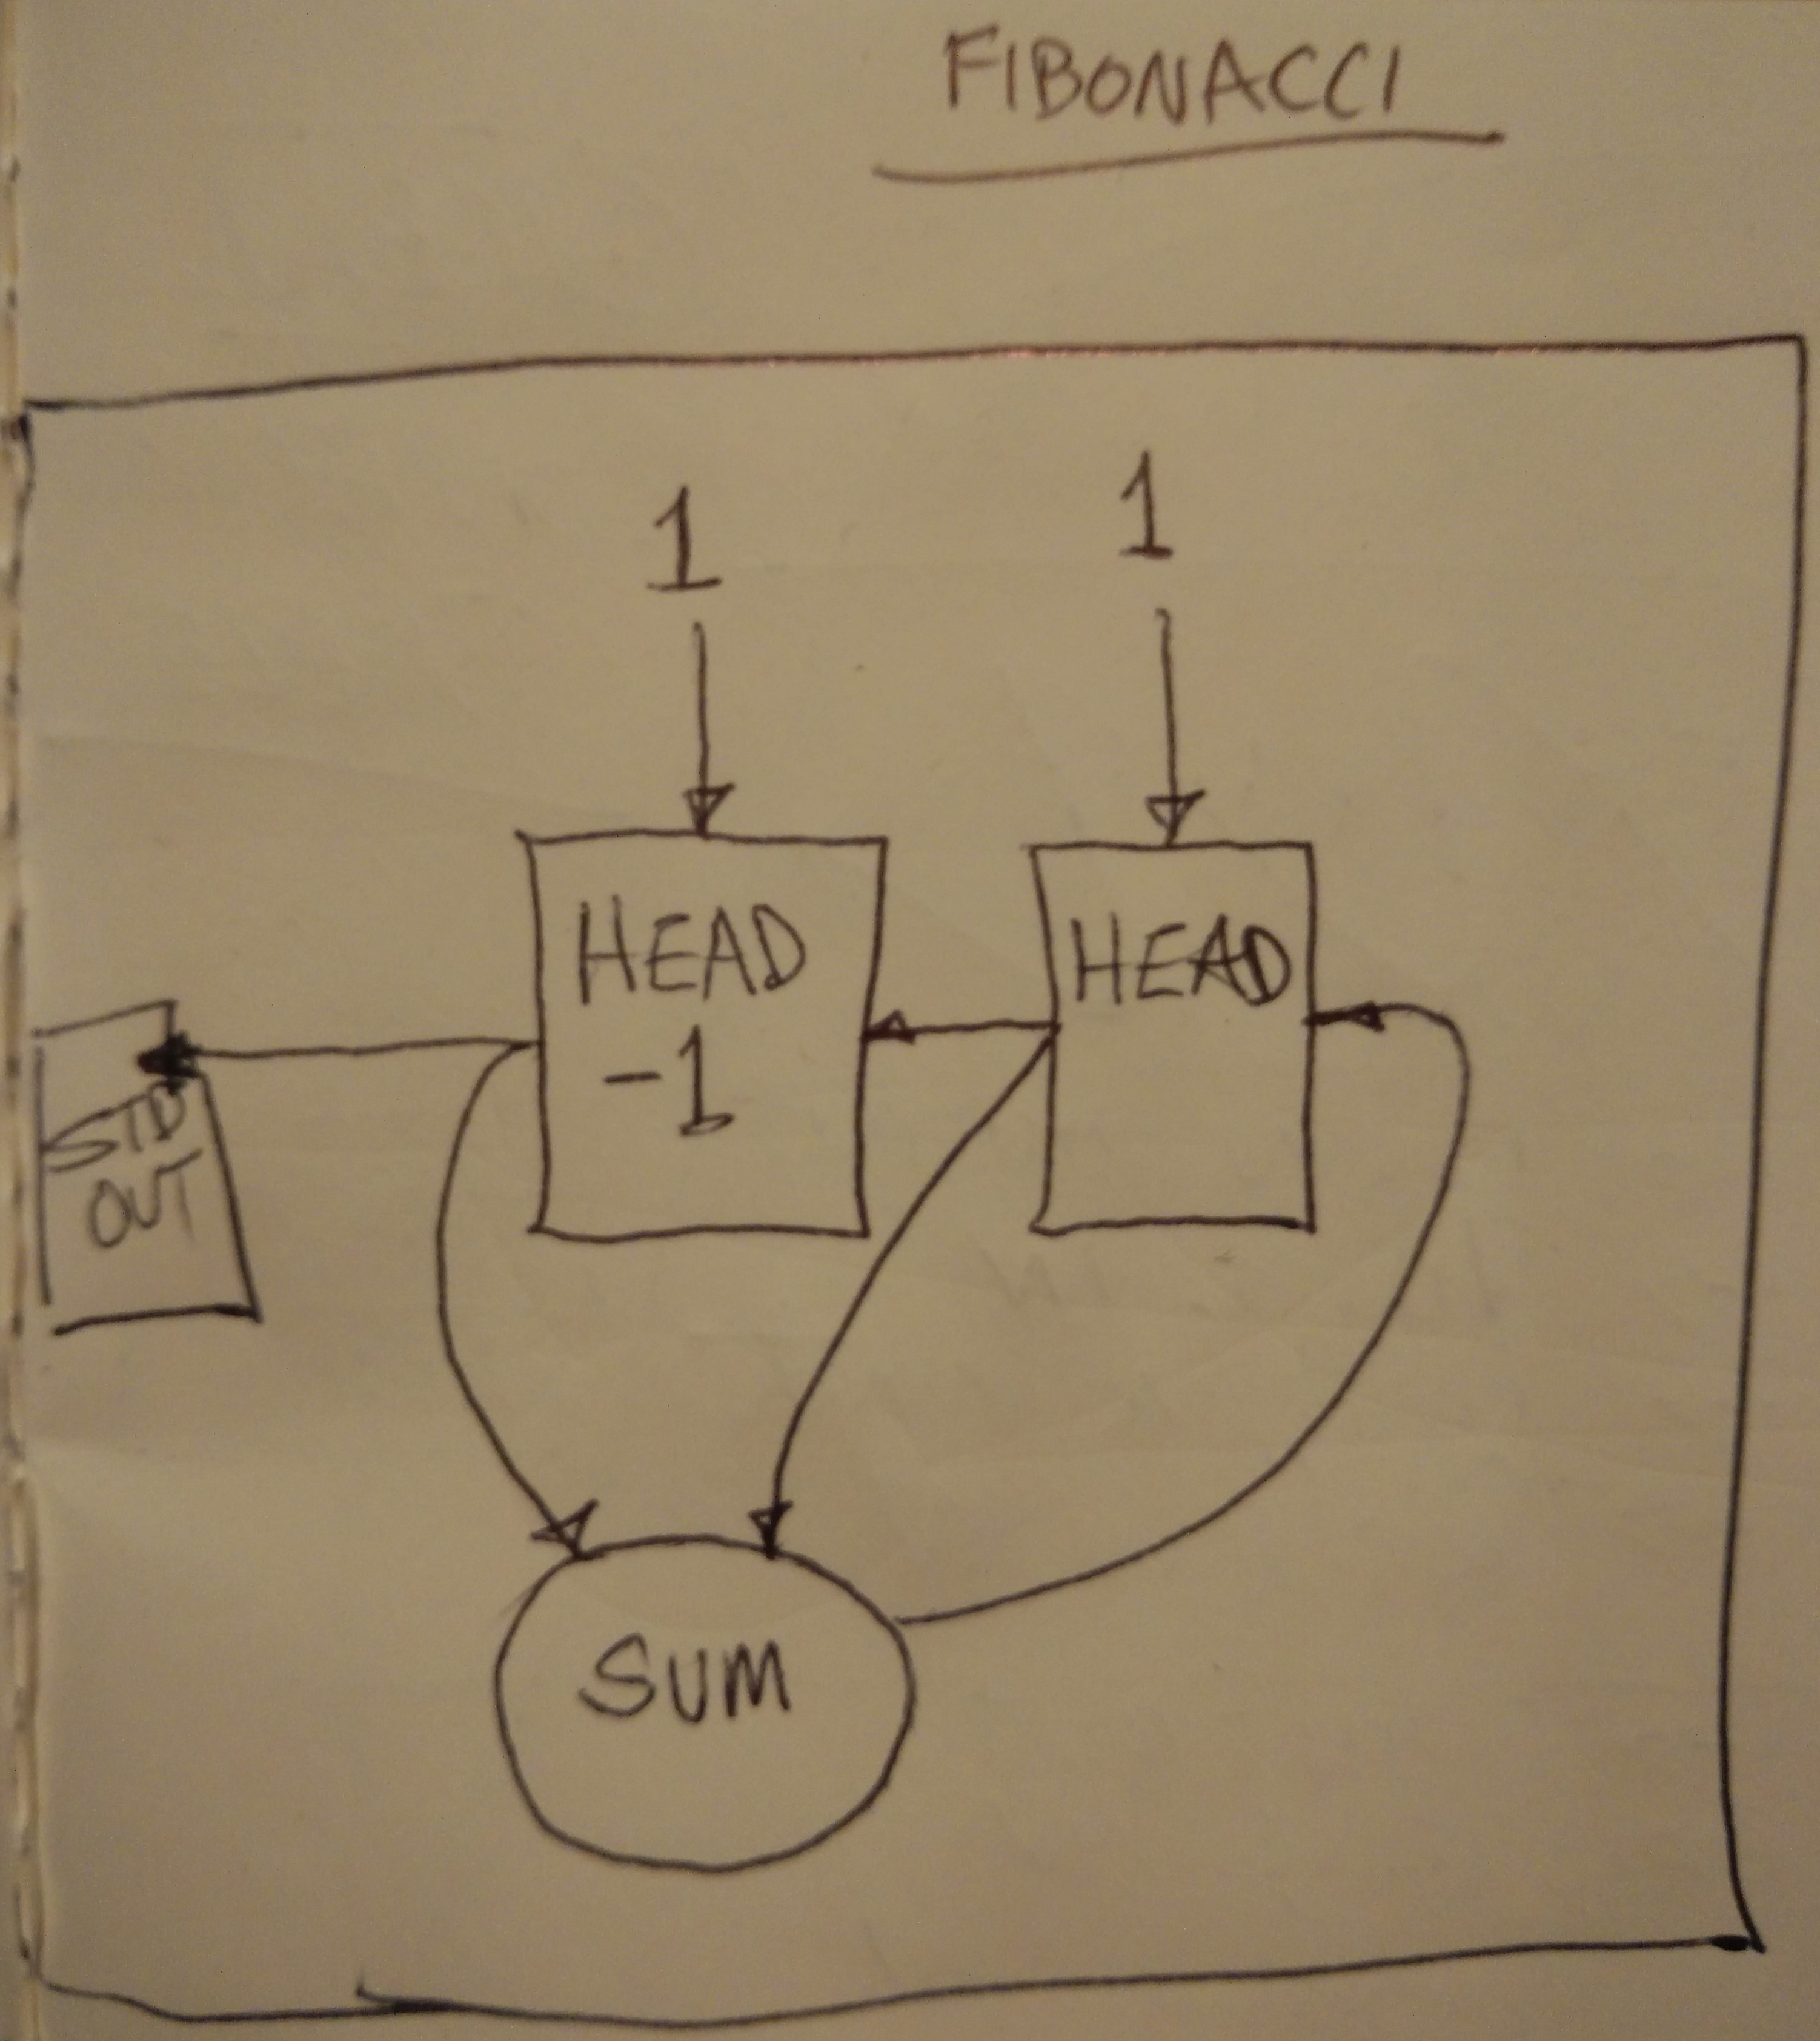 FIBONACCI
1
1
HEAD
-1
HEAD
STD
OUT
SUM